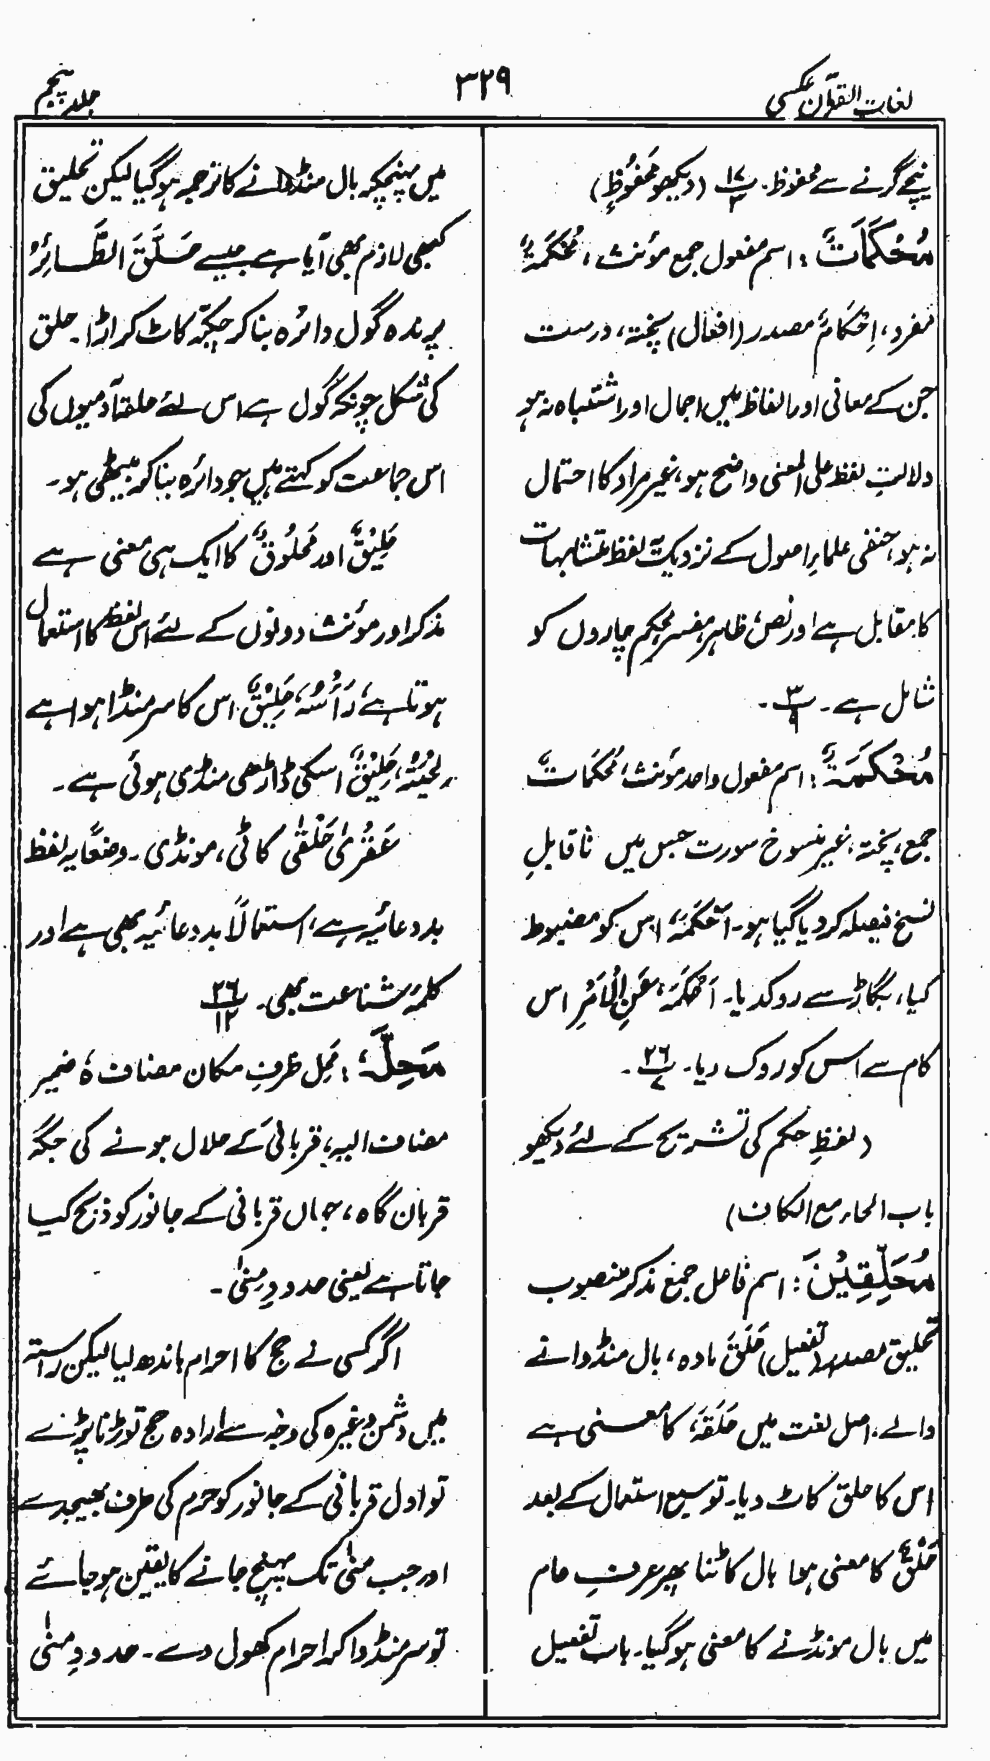 لغات القرآن عکسی
۳۲۹
جلد پنجم
نیچے گرنے سے محفوظ۔ ۱۷/۲ (دیکھو مَحْفُوظٍ)
مُحْکَمَاتٌ: اسم مفعول جمع مؤنث، مُحْکَمَۃٌ
مفرد، اِحْکَامٌ مصدر (افعال) پختہ، درست
جن کے معانی اور الفاظ میں اجمال اور اشتباہ نہ ہو
دلالتِ لفظ علی المعنی واضح ہو، غیر مراد کا احتمال
نہ ہو، حنفی علماءِ اصول کے نزدیک یہ لفظ متشابہات
کا مقابل ہے اور نص، ظاہر، مفسر، محکم چاروں کو
شامل ہے۔ ۳/۹۔
مُحْکَمَۃٌ: اسم مفعول واحد مؤنث، مُحْکَمَاتٌ
جمع، پختہ، غیر منسوخ سورت جس میں ناقابلِ
نسخ فیصلہ کر دیا گیا ہو۔ اَحْکَمَہٗ، اس کو مضبوط
کیا، بگاڑ سے روکدیا۔ اَحْکَمَہٗ عَنِ الْاَمْرِ اس
کام سے اس کو روک دیا۔ ۲۶/۷۔
(لفظِ حکم کی تشریح کے لئے دیکھو
باب الحاء مع الکاف)
مُحَلِّقِیْنَ: اسم فاعل جمع مذکر منصوب
تحلیق مصدر (تفعیل) حَلَقَ مادہ، بال منڈوانے
والے، اصل لغت میں حَلَقَہٗ کا معنی ہے
اس کا حلق کاٹ دیا۔ توسیع استعمال کے بعد
حَلْقٌ کا معنی ہوا بال کاٹنا پھر عرفِ عام
میں بال مونڈنے کا معنی ہو گیا۔ باب تفعیل
میں پہنچکر بال منڈوانے کا ترجمہ ہو گیا لیکن تحلیق
کبھی لازم بھی آیا ہے جیسے حَلَّقَ الطَّائِرُ
پرندہ گول دائرہ بنا کر چکر کاٹ کر اڑا۔ حلق
کی شکل چونکہ گول ہے اس لئے حلقہ آدمیوں کی
اس جماعت کو کہتے ہیں جو دائرہ بنا کر بیٹھی ہو۔
حَلِیْقٌ اور مَحْلُوْقٌ کا ایک ہی معنی ہے
مذکر اور مؤنث دونوں کے لئے اس لفظ کا استعمال
ہوتا ہے، رَأْسُہٗ حَلِیْقٌ، اس کا سر منڈا ہوا ہے
لِحْیَتُہٗ حَلِیْقٌ اسکی ڈاڑھی منڈی ہوئی ہے۔
عَقْرٰی حَلْقٰی کاٹی، مونڈی۔ وضعًا یہ لفظ
بد دعائیہ ہے، استعمالًا بد دعائیہ بھی ہے اور
کلمۂ شناعت بھی۔ ۲۶/۱۲
مَحِلَّہٗ: مَحِل ظرفِ مکان مضاف ہٗ ضمیر
مضاف الیہ، قربانی کے حلال ہونے کی جگہ
قربان گاہ، جہاں قربانی کے جانور کو ذبح کیا
جاتا ہے یعنی حدودِ مِنیٰ۔
اگر کسی نے حج کا احرام باندھ لیا لیکن راستہ
میں دشمن وغیرہ کی وجہ سے ارادہ حج توڑنا پڑے
تو اول قربانی کے جانور کو حرم کی طرف بھیجدے
اور جب منیٰ تک پہنچ جانے کا یقین ہو جائے
تو سر منڈوا کر احرام کھول دے۔ حدودِ منیٰ